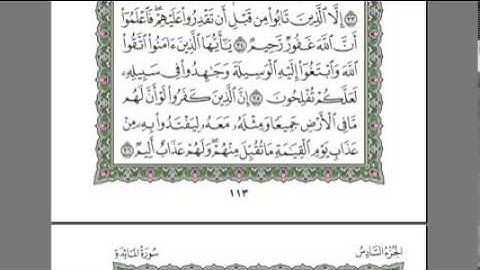 ﴿٣٣﴾ إِلَّا ٱلَّذِينَ تَابُوا۟ مِن قَبْلِ أَن تَقْدِرُوا۟ عَلَيْهِمْ ۖ فَٱعْلَمُوٓا۟
أَنَّ ٱللَّهَ غَفُورٌ رَّحِيمٌ ﴿٣٤﴾ يَـٰٓأَيُّهَا ٱلَّذِينَ ءَامَنُوا۟ ٱتَّقُوا۟
ٱللَّهَ وَٱبْتَغُوٓا۟ إِلَيْهِ ٱلْوَسِيلَةَ وَجَـٰهِدُوا۟ فِى سَبِيلِهِۦ
لَعَلَّكُمْ تُفْلِحُونَ ﴿٣٥﴾ إِنَّ ٱلَّذِينَ كَفَرُوا۟ لَوْ أَنَّ لَهُم
مَّا فِى ٱلْأَرْضِ جَمِيعًا وَمِثْلَهُۥ مَعَهُۥ لِيَفْتَدُوا۟ بِهِۦ مِنْ
عَذَابِ يَوْمِ ٱلْقِيَـٰمَةِ مَا تُقُبِّلَ مِنْهُمْ ۖ وَلَهُمْ عَذَابٌ أَلِيمٌ ﴿٣٦﴾
١١٣
الجُزءُ السَّادِسُ
سُورَةُ المَائِدَة